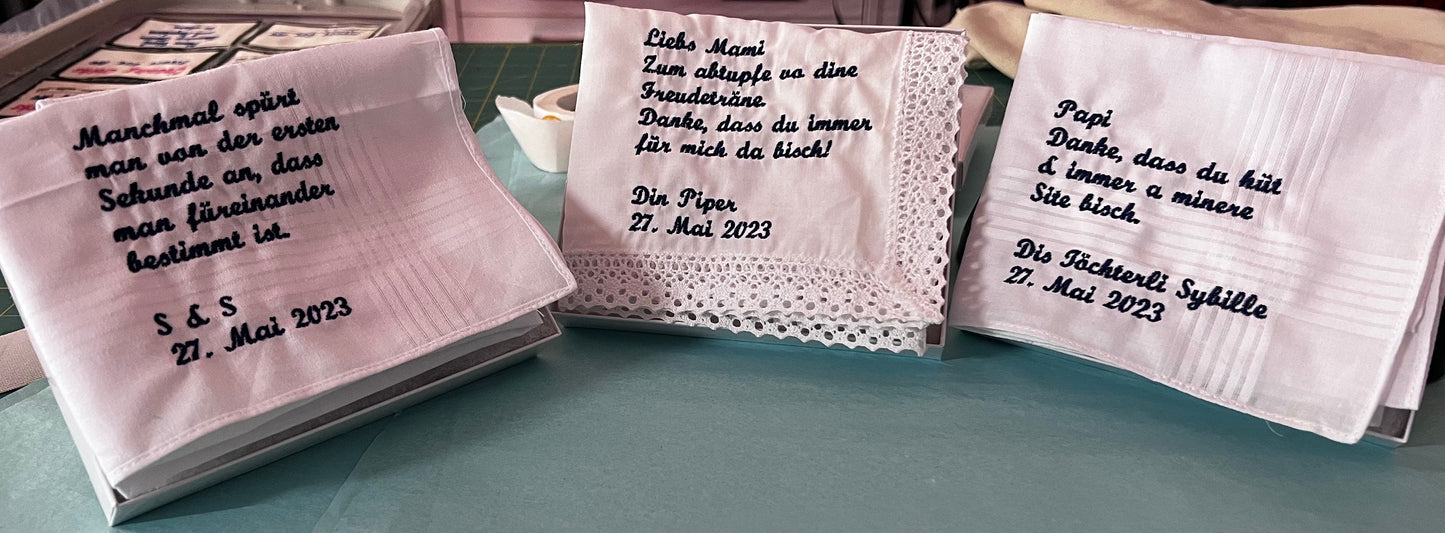 Manchmal spürt
man von der ersten
Sekunde an, dass
man füreinander
bestimmt ist.
S & S
27. Mai 2023
Liebs Mami
Zum abtupfe vo dine
Freudeträne.
Danke, dass du immer
für mich da bisch!
Din Piper
27. Mai 2023
Papi
Danke, dass du hüt
& immer a minere
Site bisch.
Dis Töchterli Sybille
27. Mai 2023